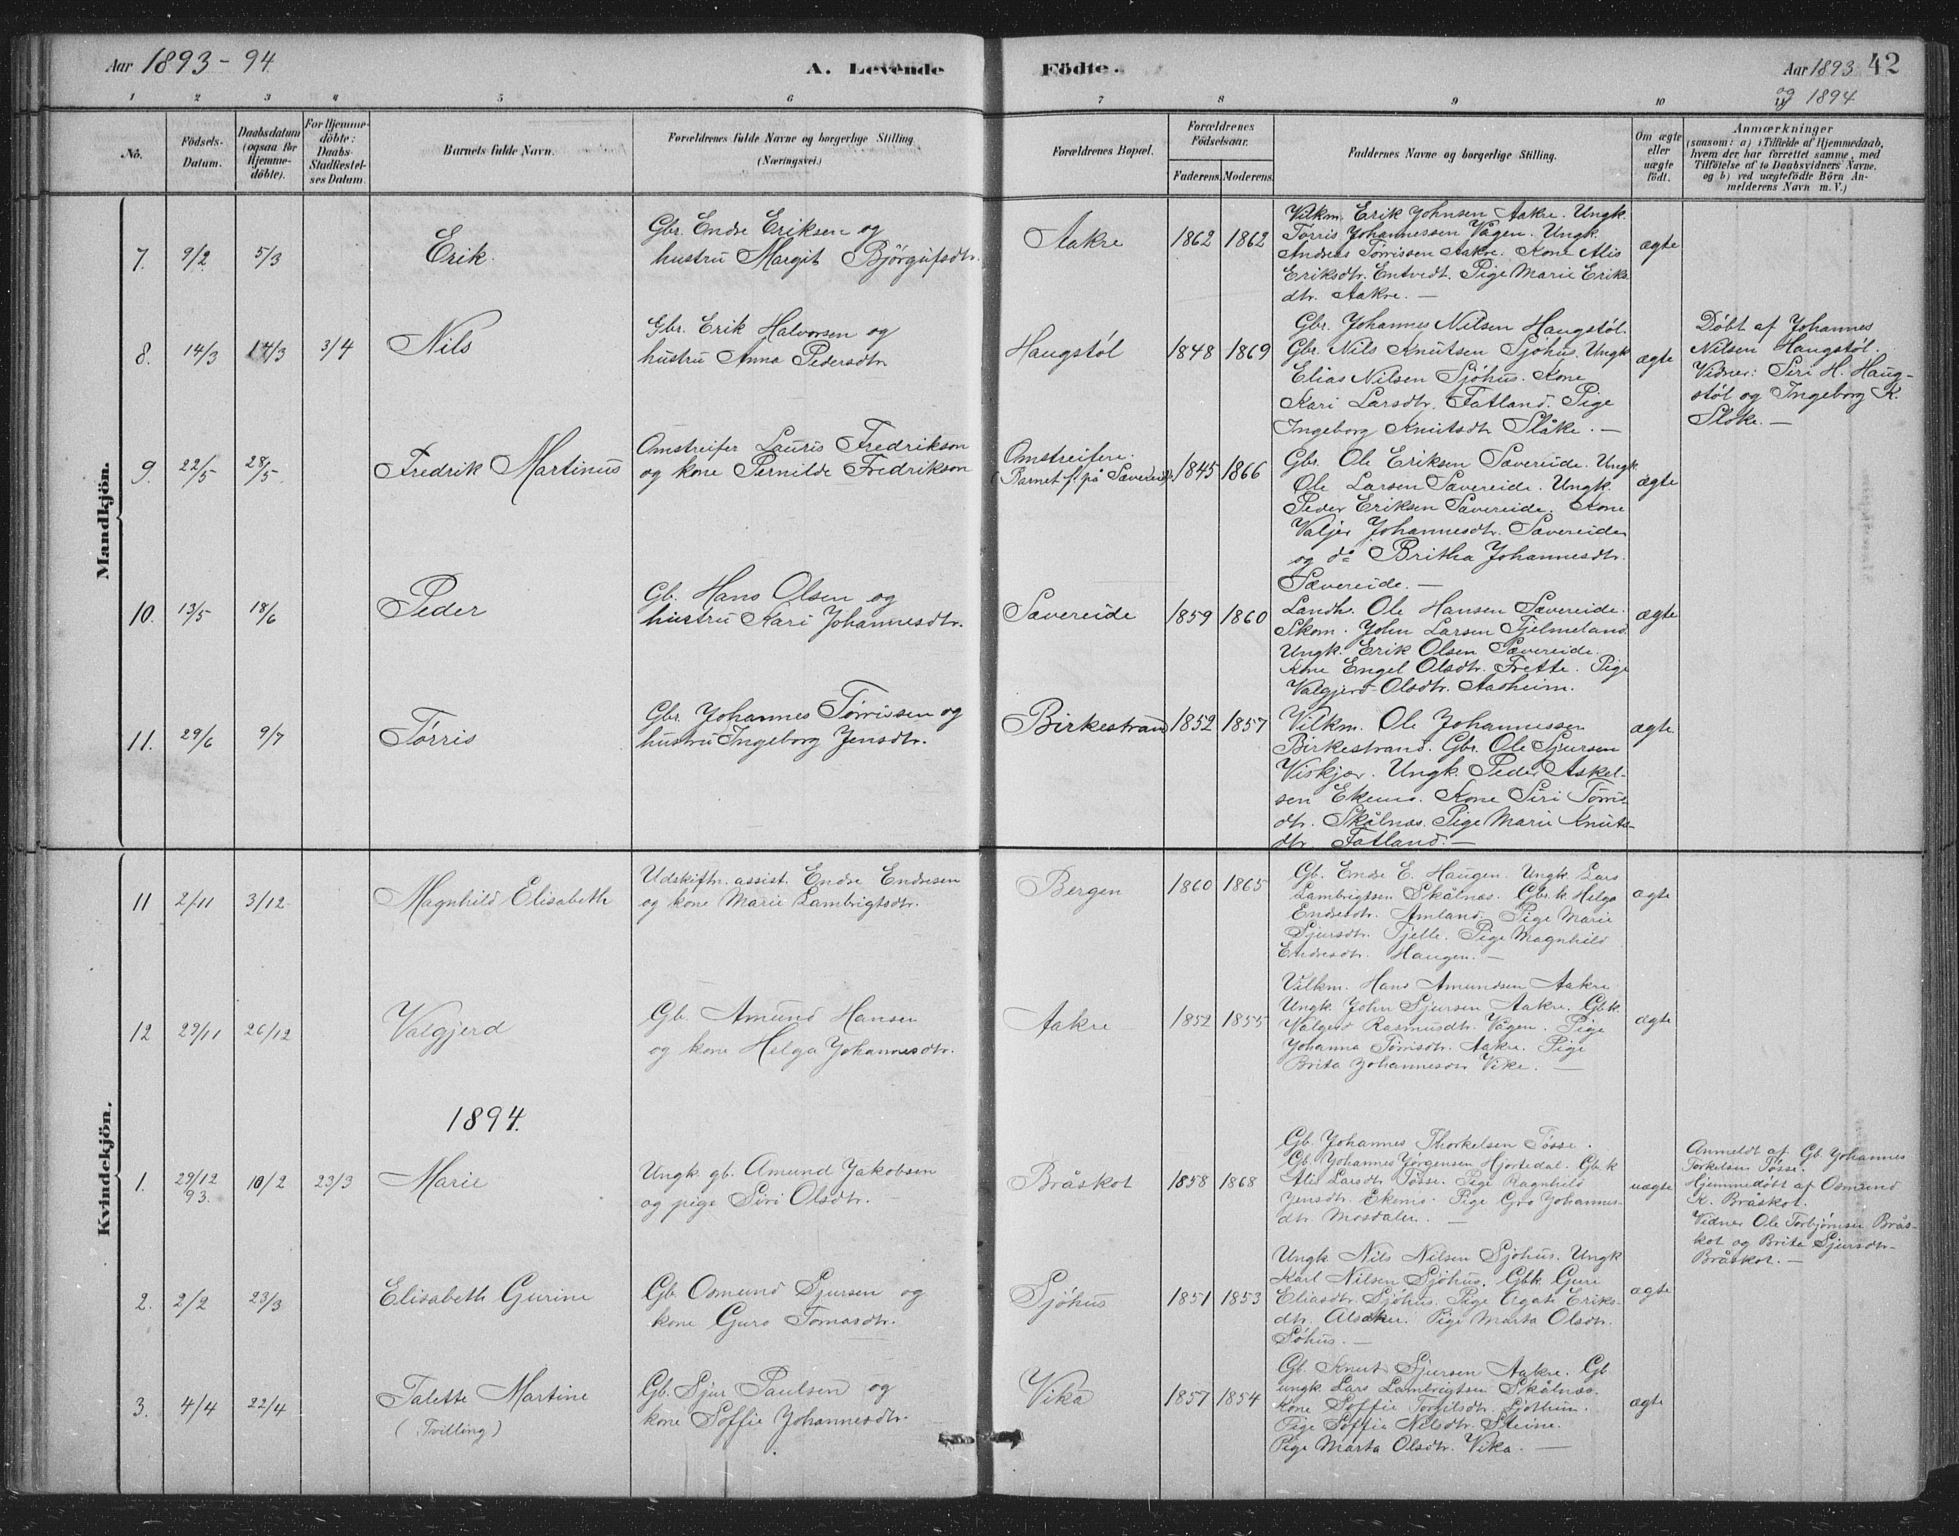 Aar 1893-94.
A. Levende Födte.
Aar 1893 42
og 1894
1 2 3 4 5 6 7 8 9 10
No.
Födsels-Datum.
Daabsdatum (ogsaa for Hjemmedöbte).
For Hjemmedöbte: Daabs-Stadfæstelses Datum.
Barnets fulde Navn.
Forældrenes fulde Navne og borgerlige Stilling. (Næringsvei.)
Forældrenes Bopæl.
Forældrenes Födselsaar.
Faderens. Moderens.
Faddernes Navne og borgerlige Stilling.
Om ægte eller uægte födt.
Anmærkninger
(saasom: a) i Tilfælde af Hjemmedaab,
hvem der har forrettet samme, med
Tilföielse af to Daabsvidners Navne,
og b) ved uægtefödte Börn An-
melderens Navn m. V.)
Mandkjön.
7. 9/2 5/3 Erik.
Gbr. Endre Eriksen og
hustru Margit Bjørgufsdtr.
Aakre 1862 1862
Vilkm. Erik Johnsen Aakre. Ungk.
Tørris Johannessen Vågen. Ungk.
Andreas Tørrissen Aakre. Kone Alis
Eriksdtr. Entvedt. Pige Marie Eriks-
dtr. Aakre. —
ægte
8. 14/3 14/3 3/4 Nils
Gbr. Erik Halvorsen og
hustru Anna Pedersdtr.
Haugstøl 1848 1869
Gbr. Johannes Nilsen Haugstøl.
Gbr. Nils Knutsen Sjøhus. Ungk
Elias Nilsen Sjøhus. Kone
Kari Larsdtr. Fatland. Pige
Ingeborg Knutsdtr Slåke. —
ægte
Døbt af Johannes
Nilsen Haugstøl.
Vidner: Siri H. Haug-
støl og Ingeborg K.
Sloke. —
9. 22/5 28/5. Fredrik Martinus
Omstreifer Lauris Fredrikson
og kone Pernilde Fredrikson
Omstreifere.
(Barnet f. på Sævereide) 1845 1866
Gbr. Ole Eriksen Sævereide. Ungk
Ole Larsen Sævereide. Ungk.
Peder Eriksen Sævereide. Kone
Valjer Johannesdtr. Sævereide
og do Britha Johannesdtr.
Sævereide. —
ægte
10. 13/5 18/6 Peder
Gb. Hans Olsen og
hustru Kari Johannesdtr.
Sævereide 1859 1860
Landh. Ole Hansen Sævereide.
Skom. John Larsen Fjelmeland
Ungk. Erik Olsen Sævereide.
Kone Engel Olsdtr. Frette. Pige
Valgjerd Olsdtr. Aasheim.
ægte
11. 29/6 9/7 Tørris
Gbr. Johannes Tørrissen og
hustru Ingeborg Jensdtr.
Birkestrand 1852 1857
Vilkm. Ole Johannessen
Birkestrand. Gbr. Ole Sjursen
Viskjær. Ungk. Peder Askel-
sen Ekenes. Kone Siri Tørris-
dtr. Skålnæs. Pige Marie Knuts-
dtr. Fatland. —
ægte
Kvindekjön.
11 2/11 3/12. Magnhild Elisabeth
Udskiftn. assist. Endre Endresen
og kone Marie Lambrigtsdtr.
Bergen 1860 1865
Gb. Endre E. Haugen. Ungk Lars
Lambrigtsen Skålnæs. Gbr.k. Helga
Endresdtr. Amland. Pige Marie
Sjursdtr. Tjelle. Pige Magnhild
Endresdtr. Haugen. —
ægte
12 29/11 26/12 Valgjerd
Gb. Amund Hansen
og kone Helga Johannesdtr.
Aakre 1852 1855
Vilkm. Hans Amundsen Aakre
Ungk. John Sjursen Aakre. Gb.k.
Valgerd Rasmusdtr. Vågen. Pige
Johanna Tørrisdtr. Aakre. Pige
Brita Johannesdtr Vike. —
ægte
1894.
1. 29/12 93. 10/2 23/3 Marie
Ungk. gb. Amund Jakobsen
og pige Siri Olsdtr. —
Bråskot 1858 1868
Gb. Johannes Thorkelsen Tøsse.
Gb. Johannes Jørgensen Hjortedal. Gb.k
Alis Larsdtr. Tøsse. Pige Ragnhild
Jensdtr. Ekenes. Pige Gro Johannes-
dtr. Mosdalen. —
uægte
Anmeldt af Gb. Johannes
Torkelsen Tøsse.
Hjemmedøbt af Osmund
K. Bråskot.
Vidner Ole Torbjørnsen Brås-
kot og Brite Sjursdtr.
Bråskot. —
2. 2/2 23/3 Elisabeth Gurine
Gb. Osmund Sjursen og
kone Guro Tomasdtr.
Sjöhus 1851 1853
Ungk Nils Nilsen Sjøhus. Ungk
Karl Nilsen Sjöhus. Gb.k Guri
Eliasdtr. Sjöhus. Pige Agate Eriks-
dtr. Alsaker. Pige Marta Olsdtr.
Söhus. —
ægte
3. 4/4 22/4 Talette Martine
(Tvilling)
Gb. Sjur Paulsen og
kone Soffie Johannesdtr.
Vika 1857 1854
Gb. Knut Sjursen Aakre. Gb
ungk. Lars Lambrigtsen Skålnæs.
Kone Soffie Torgilsdtr. Sjothun.
Pige Soffie Nilsdtr. Steine.
Pige Marta Olsdtr. Vika. —
ægte